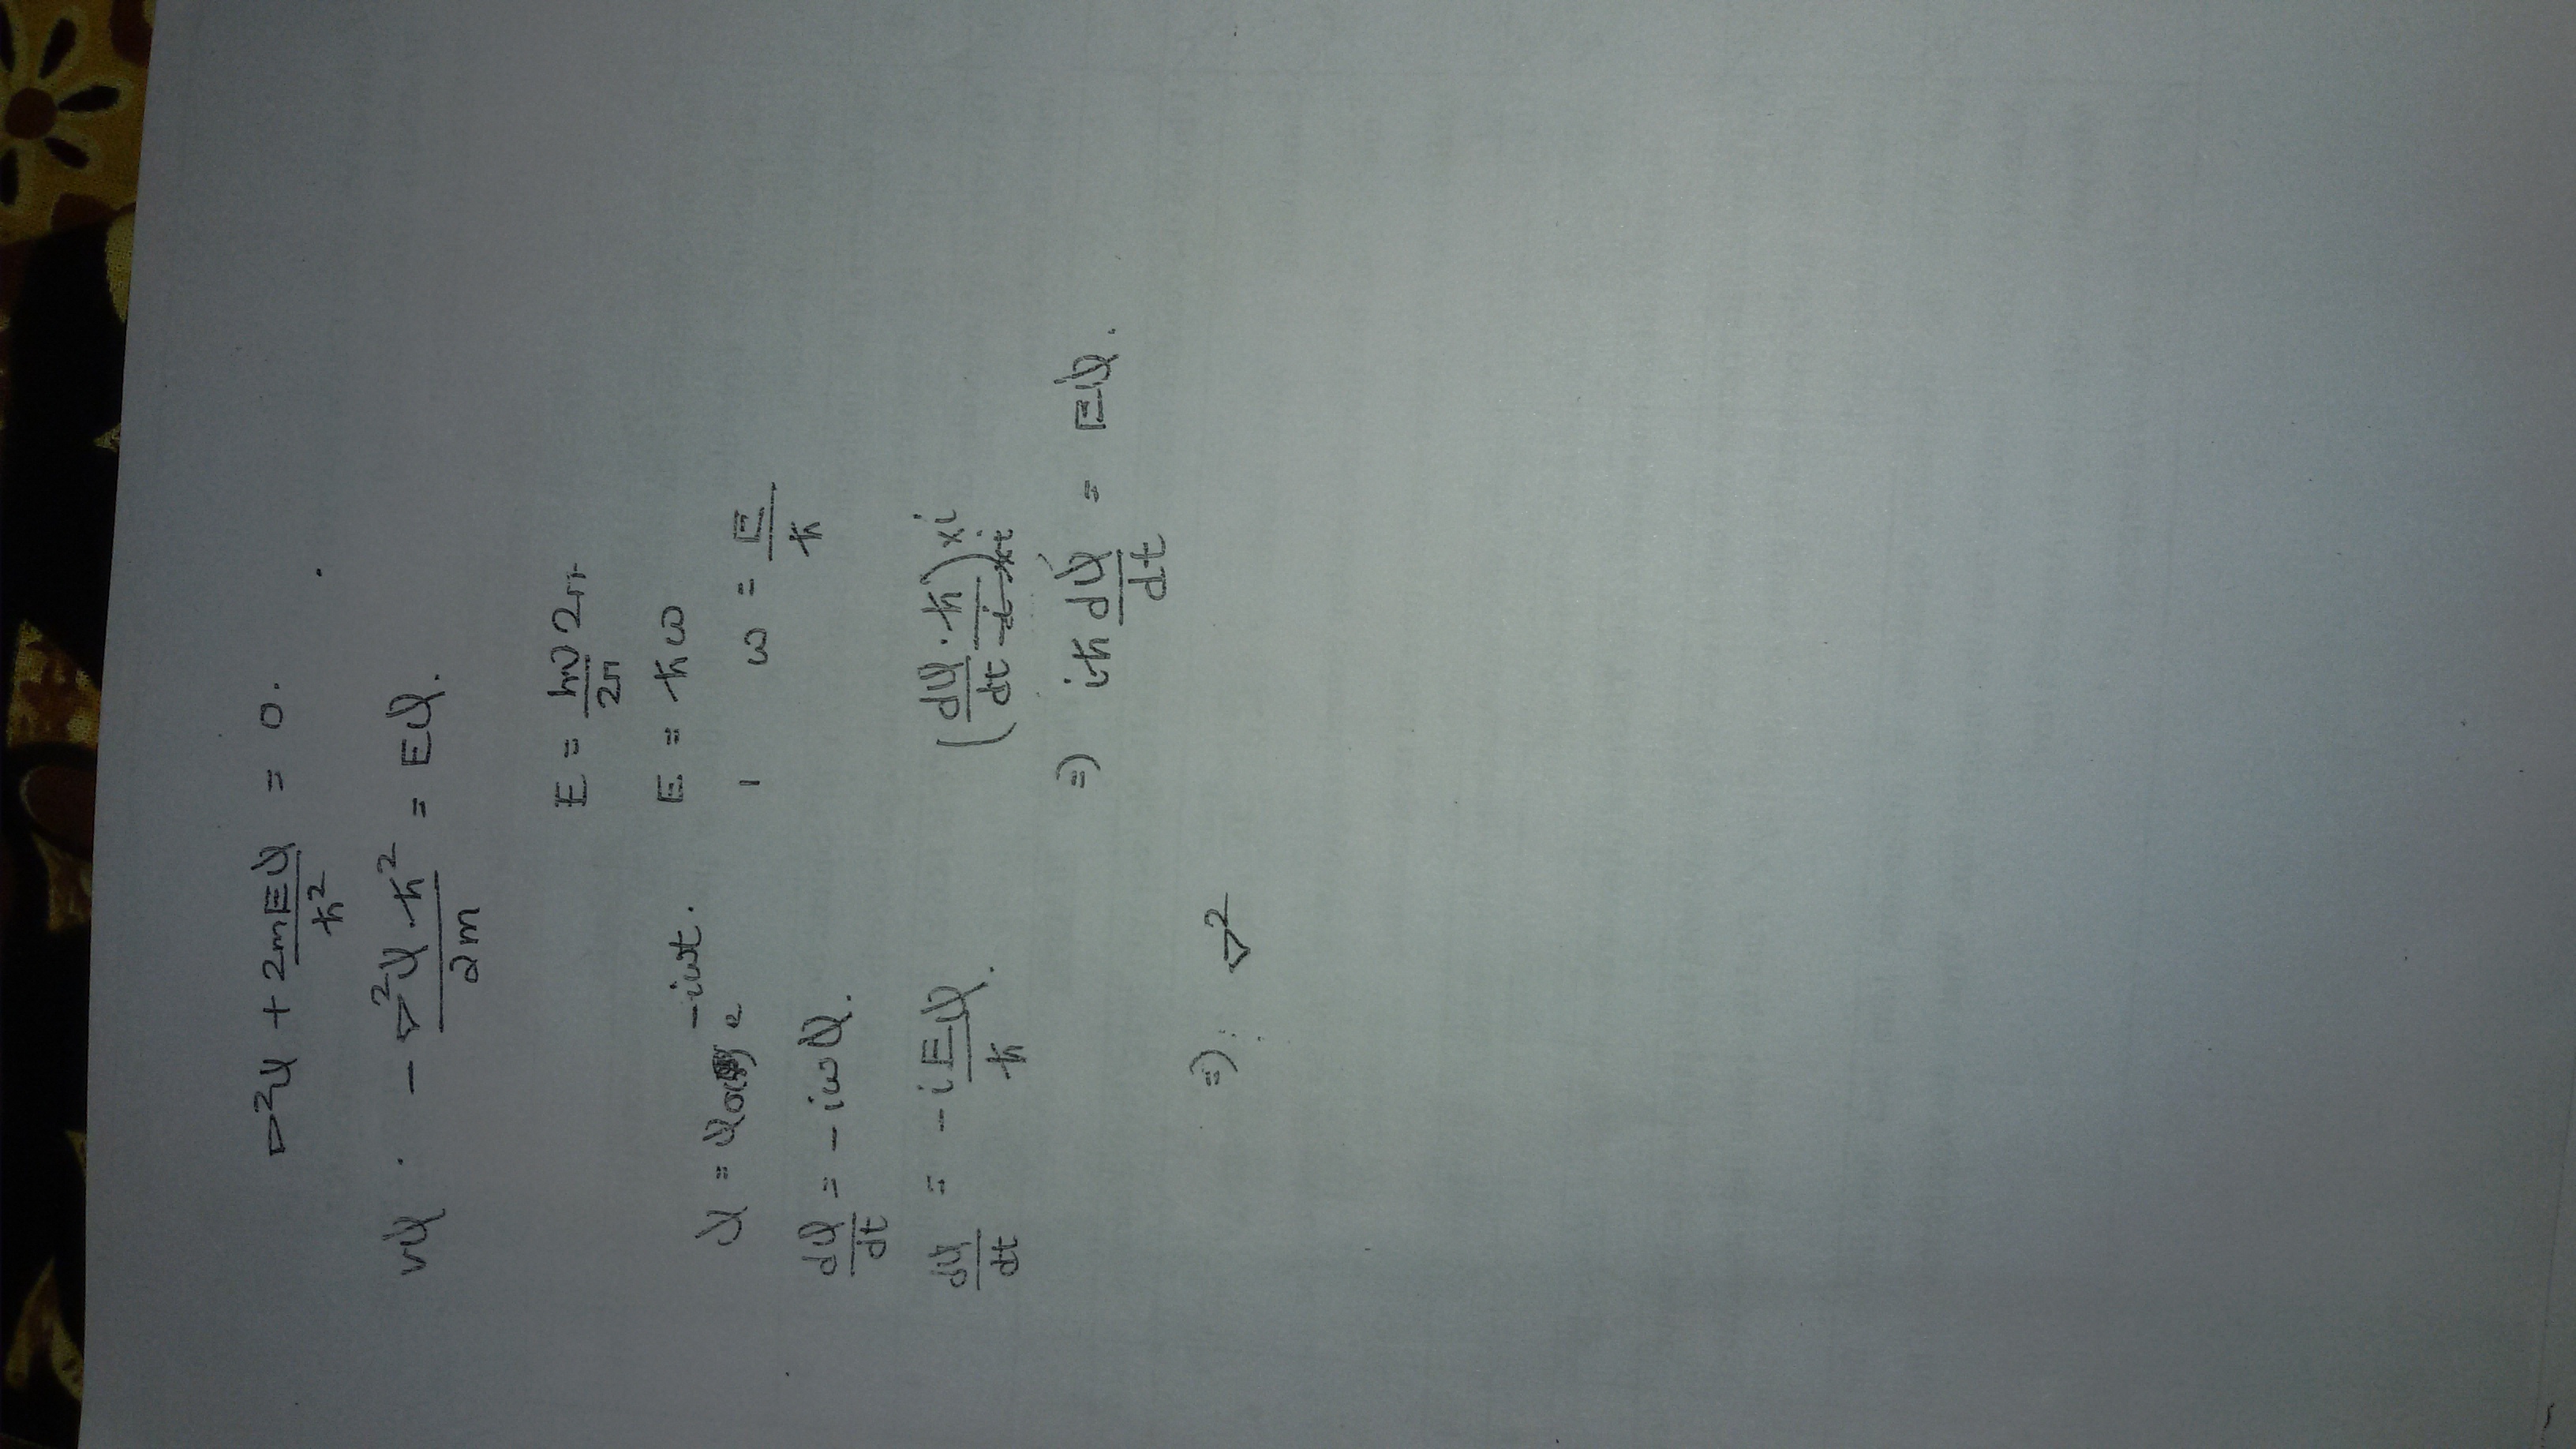 ∇²ψ + 2mEψ/ħ² = 0.
vψ · -∇²ψ·ħ²/2m = Eψ.
E = hν/2π 2π
E = ħω
ψ = ψ₀ e^-iωt.
ω = E/ħ
dψ/dt = -iωψ.
dψ/dt = -iEψ/ħ.
(dψ/dt · ħ/-i×i)×i
⇒ iħ dψ/dt = Eψ.
⇒ ∇²